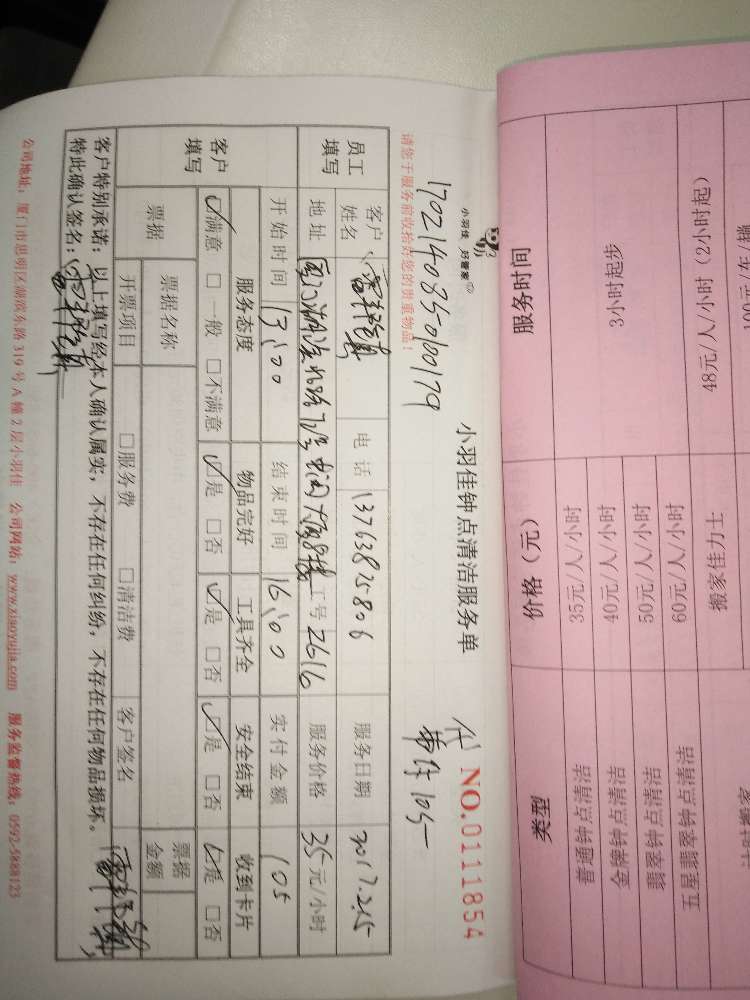 小羽佳 好管家
170214085010179
小羽佳钟点清洁服务单
代
NO.0111854
105-
请您于服务前收拾好您的贵重物品！
员工填写
客户姓名
电话
13763825806
服务日期
2017.2.15
地址
工号
2616
服务价格
35元/小时
客户填写
开始时间
13:00
结束时间
16:00
实付金额
105
服务态度
物品完好
工具齐全
安全结束
收到卡片
☑满意 □一般 □不满意
☑是 □否
☑是 □否
☑是 □否
☑是 □否
票据
票据名称
票据金额
开票项目
□服务费
□清洁费
客户签名
客户特别承诺：以上填写经本人确认属实，不存在任何纠纷，不存在任何物品损坏。
特此确认签名：
公司地址：厦门市思明区湖滨东路319号A幢2层小羽佳 公司网站：www.xiaoyujia.com 服务监督热线：0592-5888123
类型
价格（元）
服务时间
普通钟点清洁
35元/人/小时
3小时起步
金牌钟点清洁
40元/人/小时
翡翠钟点清洁
50元/人/小时
五星翡翠钟点清洁
60元/人/小时
搬家佳力士
48元/人/小时（2小时起）
100元/车/趟